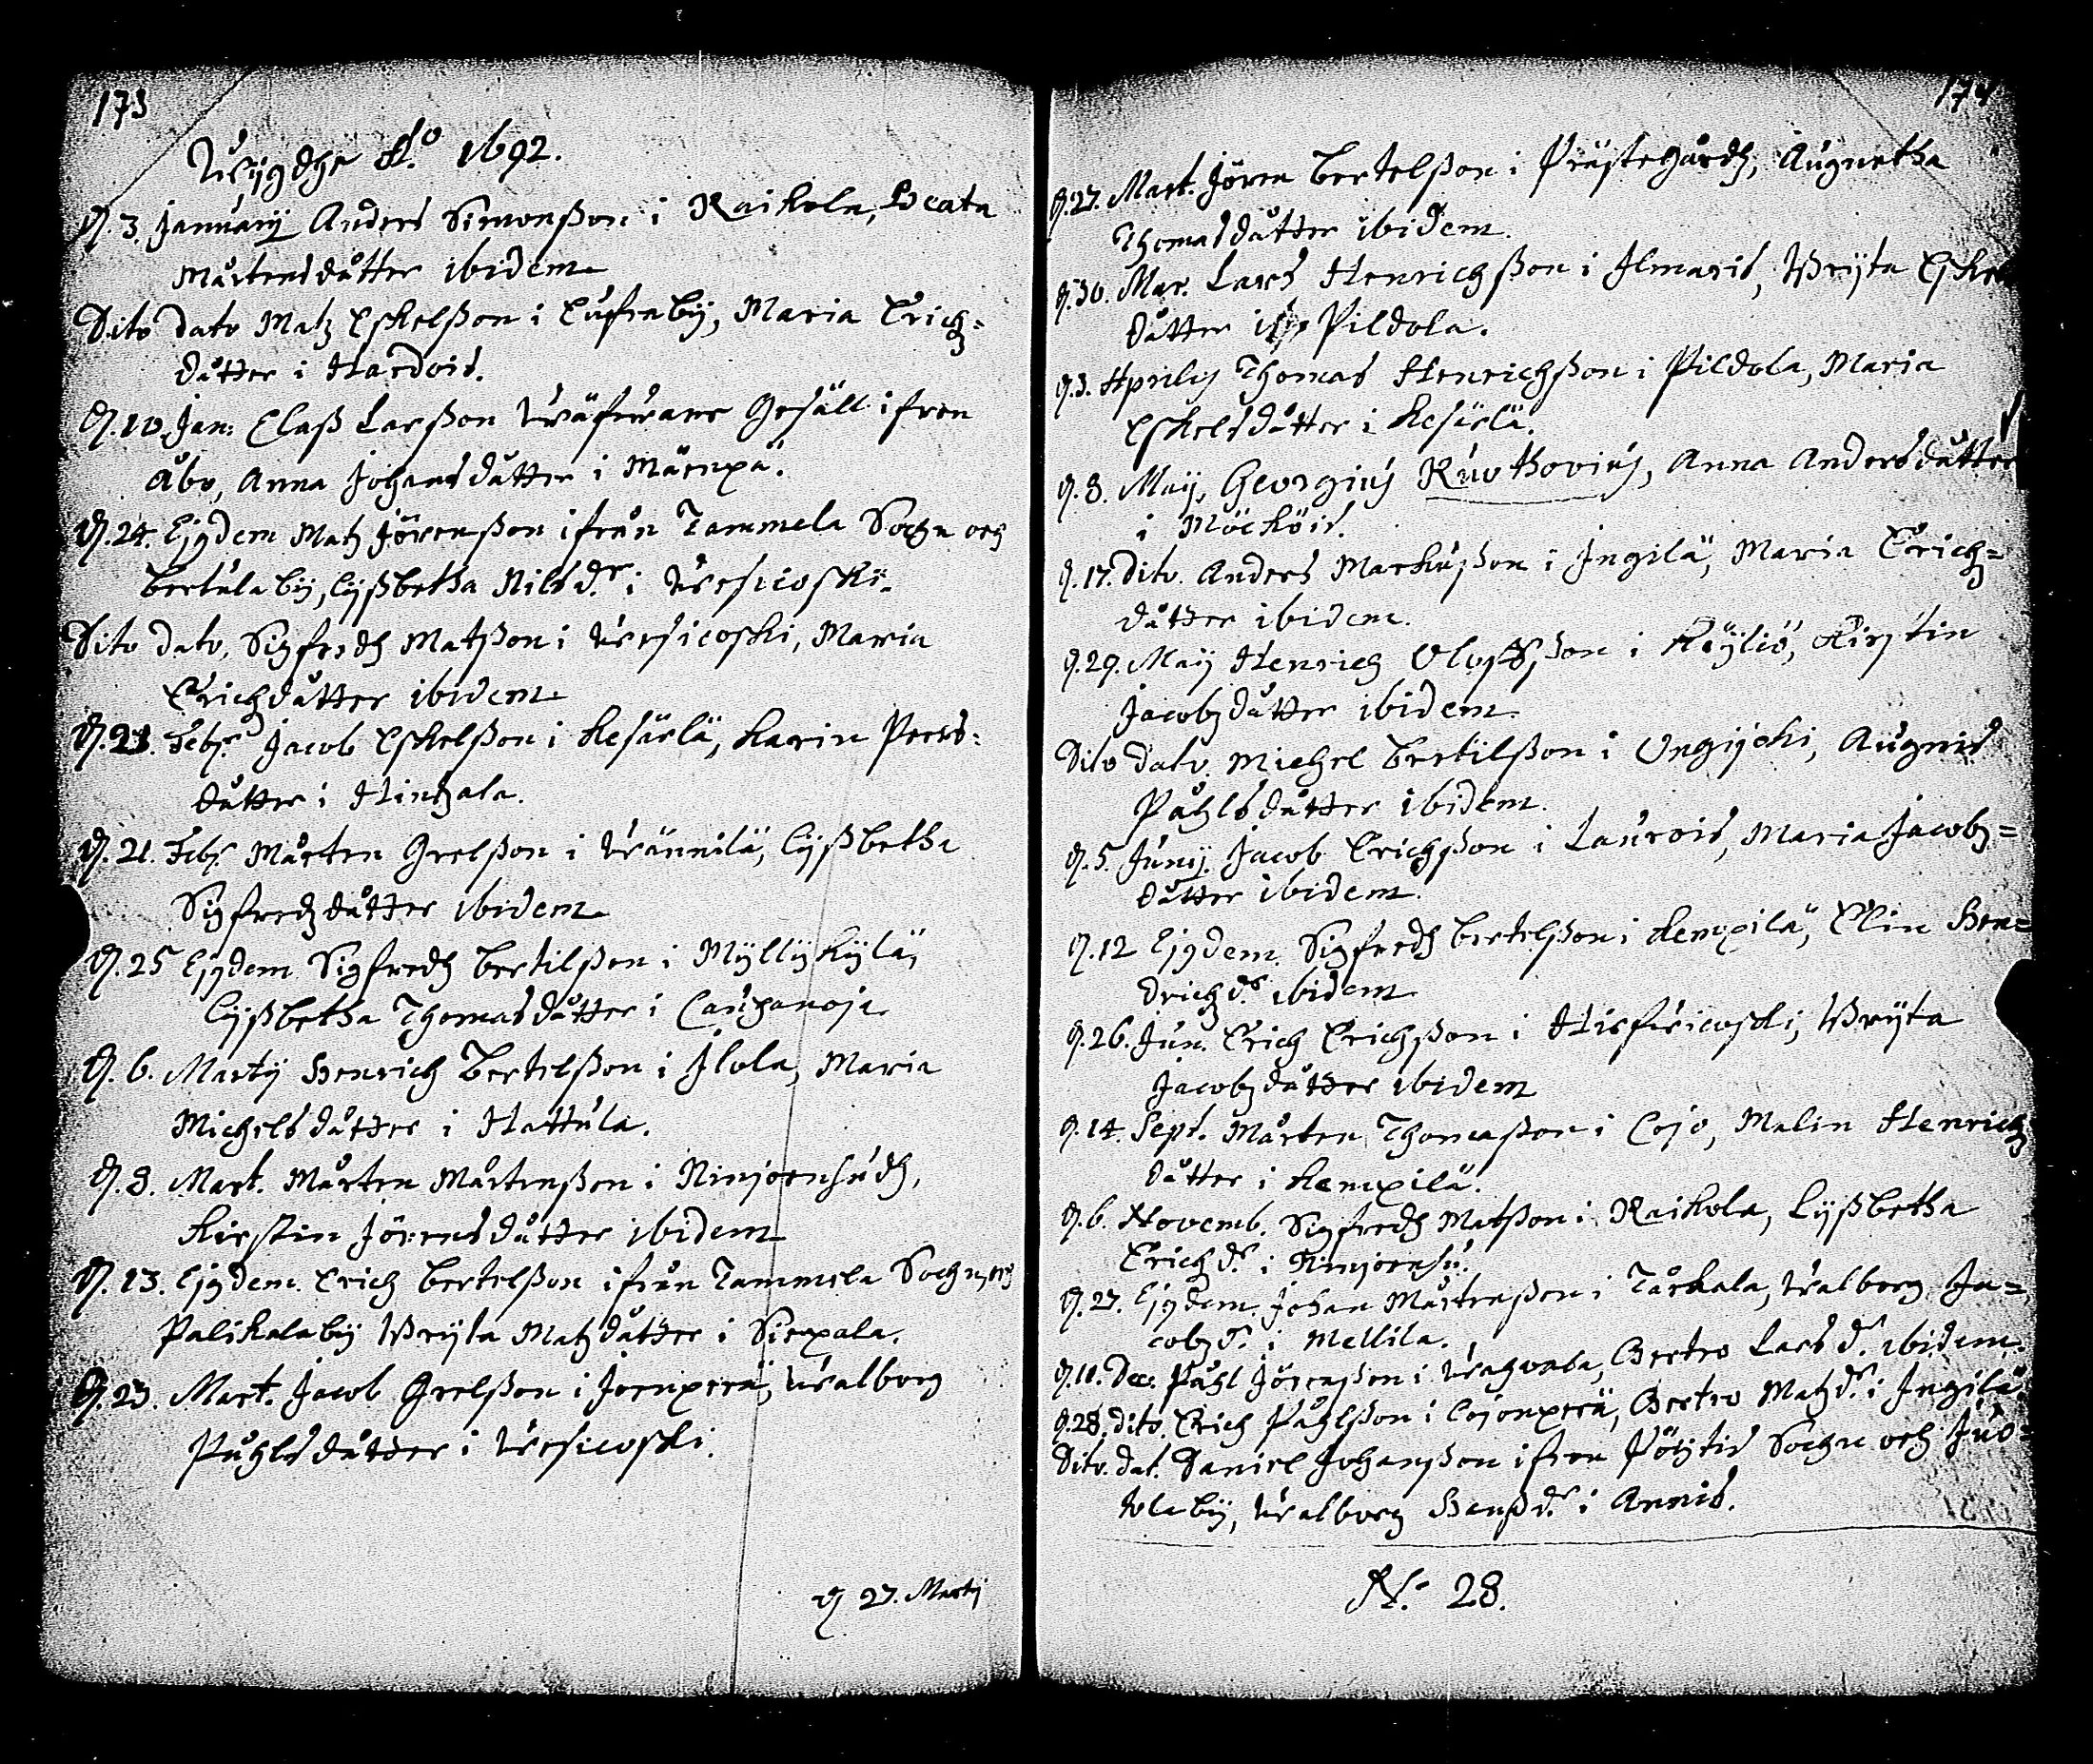 173
Wijgdhe A:o 1692.
D. 3. Januarij Anders Simonßon i Raikola, Beata
Mårtensdåtter ibidem
Dito dato Matz Eskelßon i, Maria Erich=
dåtter i Hardois.
D. 10. Jan: Claß Larßon Gesäll ifrån
Åbo, Anna Johansdåtter i Mäenpä.
D. 24. Ejgdem Matz Jörenßon ifrån Tammela Sochn och
Bertula by, Lyßbetha Nilsd:r i Wesicoski.
Dito dato, Sigfredh Matßon i Wesicoski, Maria
Erichdåtter ibidem
D. 23. Feb:r Jacob Eskelßon i Kesärlä, Karin Pers=
dåtter i Hintzala.
D. 21. Feb:r Mårten Grelßon i Wännilä, Lyßbetha
Sigfredzdåtter ibidem
D. 25 Ejgdem Sigfredh Bertilßon i Myllykylä,
Lyßbetha Thomasdåtter i Cauhanoja.
D. 6. Martij Henrich Bertelßon i Ilola, Maria
Michelsdåtter i Hattula.
D. 8. Mart. Mårten Mårtenßon i Ninjoensuds,
Kirstin Jörensdåtter ibidem
D. 13. Ejgdem. Erich Bertelßon ifrån Tammela Sochn, och
Palikalaby Wryta Matzdåtter i Sieppala.
D. 23. Mart. Jacob Grelßon i Joenperä, Walborg
Påhlsdåtter i Wesicoski.
D 27. Martij
174
D. 27. Mart. Jören Bertelßon i Prästegårdh, Augnetha
Thomasdåtter ibidem.
D. 30. Mar. Lars Henrichßon i Ilmaris, Wryta Eskels
dåtter i Pildola.
D. 3. Aprilis Thomas Henrichßon i Pildola, Maria
Eskelsdåtter i Kesärlä.
D. 8. Maij, Georgius Ruothovius, Anna Andersdåtter
i Möcköis.
D. 17. Dito. Anders Markußon i Ingilä, Maria Erich=
dåtter ibidem.
D. 29. Maij Henrich Oluffßon i Köyliö, Kirstin
Jacobzdåtter ibidem
Dito dato. Michel Bertilßon i Ongijoki, Augnis
Påhlsdåtter ibidem.
D. 5. Junij. Jacob Erichßon i Laurois, Maria Jacobz=
dåtter ibidem.
D. 12 Ejgdem. Sigfredh Bertelßon i Kempilä, Elin Hen=
drichd:r ibidem
D. 26. Jun. Erich Erichßon i Hirfwicoski, Wryta
Jacobzdåtter ibidem
D. 14. Sept. Mårten Thomaßon i Cojo, Malin Henrich
dåtter i Kempilä.
D. 6. Novemb. Sigfredh Matßon i Raikola, Lyßbetha
Erichd:r i Ninjoensu.
D. 27. Ejgdem. Johan Mårtenßon i Tårkala, Walborg Ja=
cobzd:r i Mellilä.
D. 10. Dec. Påhl Jörenßon i, Bertro Larsd:r ibidem.
D. 28. dito. Erich Påhlßon i Cojonperä, Bertro Matzd:r i Ingilä.
Dito. dat. Daniel Johanßon ifrån Pöytis Sochn och Juo=
tola by, Walborg Hanßd:r i Annis.
N:o 28.